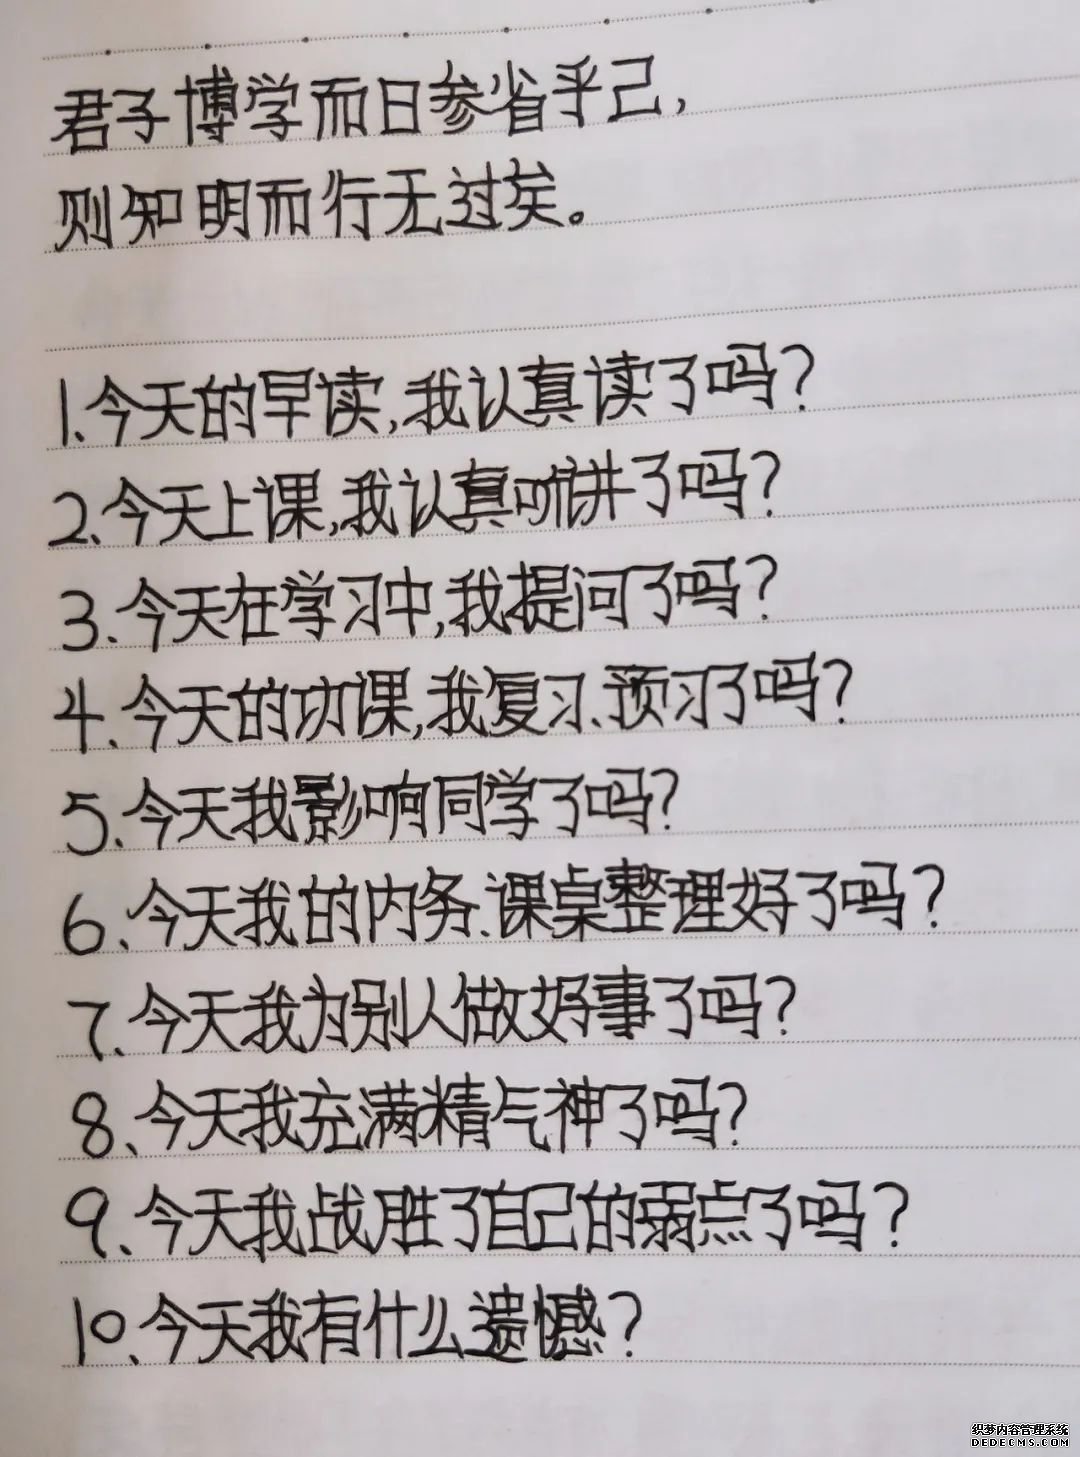 君子博学而日参省乎己,
则知明而行无过矣。
1.今天的早读,我认真读了吗?
2.今天上课,我认真听讲了吗?
3.今天在学习中,我提问了吗?
4.今天的功课,我复习、预习了吗?
5.今天我影响同学了吗?
6、今天我的内务、课桌整理好了吗?
7、今天我为别人做好事了吗?
8、今天我充满精气神了吗?
9、今天我战胜了自己的弱点了吗?
10、今天我有什么遗憾?
织梦内容管理系统
DEDECMS.COM